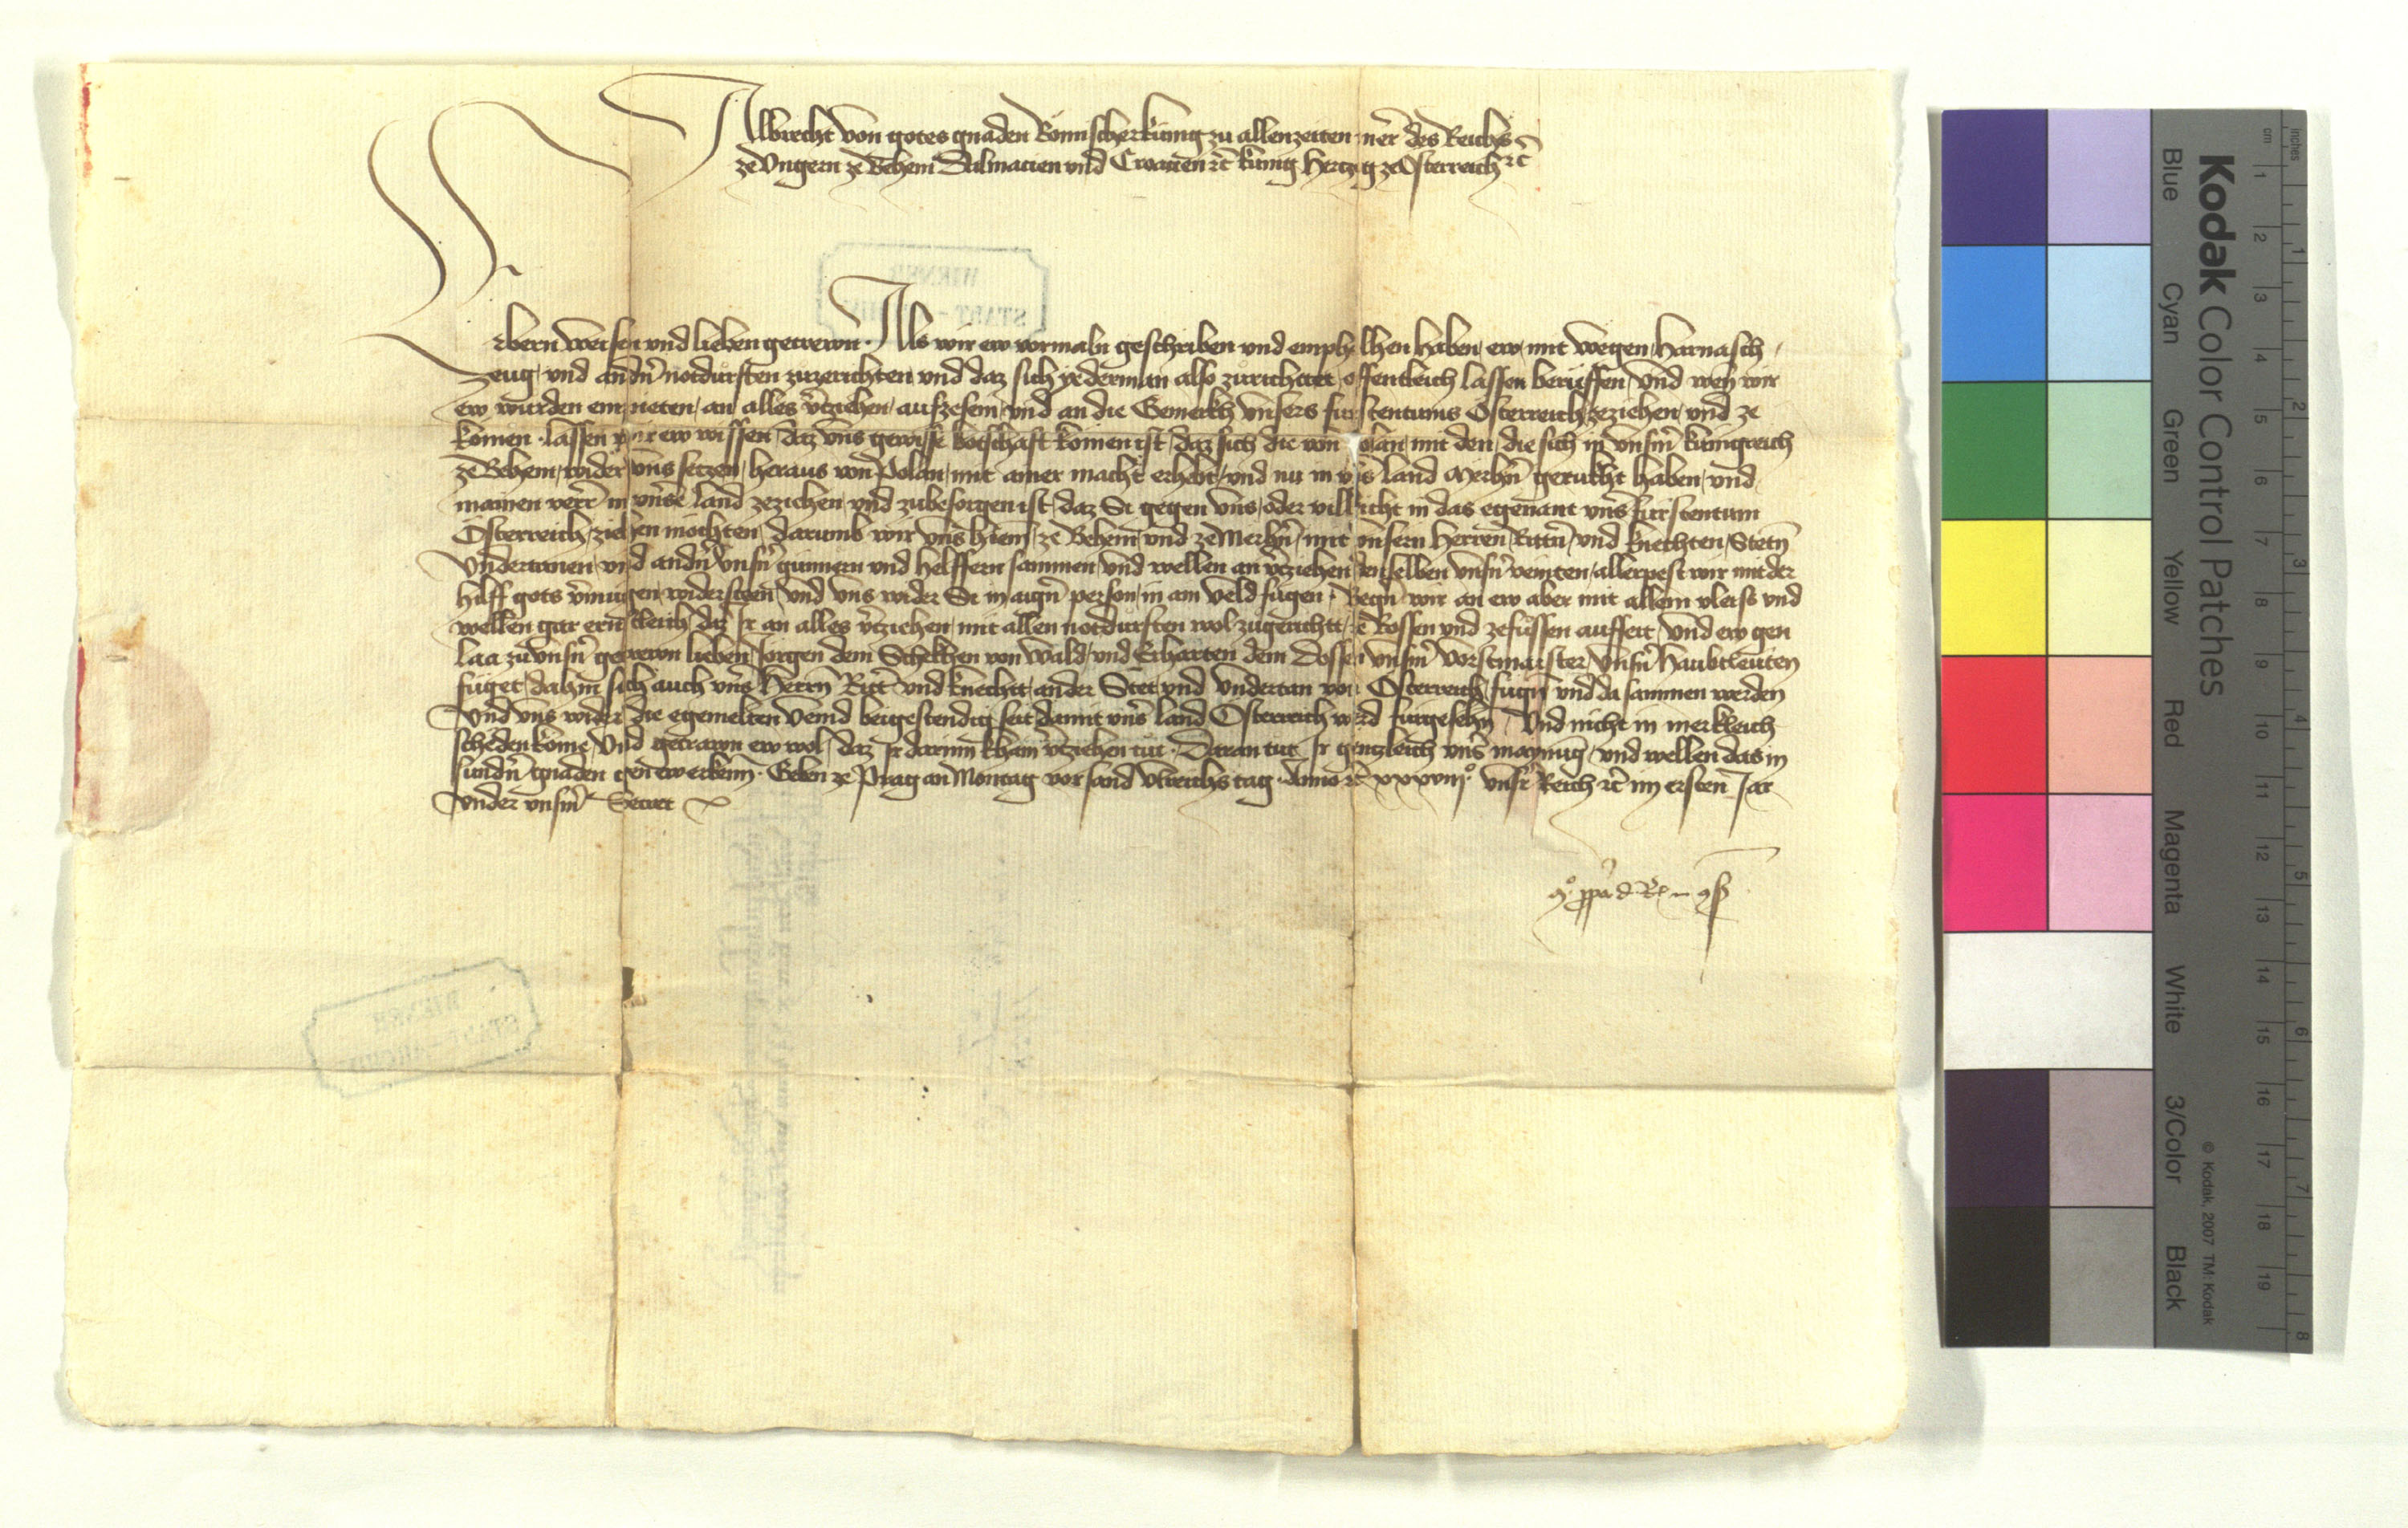 Albrecht von gotes gnaden Romischer kunig zu allenzeiten merer des Reichs
ze Ungern ze Behem Dalmacien und Croacien etc kunig Hertzog ze Osterreich etc
Erbern weisen und lieben getrewn. Als wir ew vormaln geschriben und empholhen haben, ew, mit wegen, Harnasch,
zeug, und andern notdurften zuzerichten und daz sich yederman also zurichttet, offentleich lassen beruffen, und wen wir
ew wurden empieten, an alles verziehen, aufzesein, und an die Gemerkh unsers furstentums Osterreich, zeziehen, und ze
komen. lassen wir ew wissen, daz uns gewisse botschaft komen ist, daz sich die von Polan, mit den, die sich in unserm kunigreich
ze Behem, wider uns setzen, heraus von Polan, mit ainer macht erhebt, und nu in unser land Merhern gerukht haben, und
mainen verrer in unsere land zeziehen, und zubesorgen ist, daz Si gegen uns, oder villeicht in das egenant unser furstentum
Osterreich, ziehen mochten, darumb wir uns hiem, ze Behem, und ze Merhern, mit unsern Herren, Rittern, und knechten, Stetn
Undertanen und andern unsern gunnern und helffern sammen, und wellen an verziehen denselben unsern veinten, allerpest wir mit der
hilff gots vermugen, widersteen, und uns wider Si in aigner person, in am veld fugen. Begern wir an ew aber mit allem vleiss und
wellen gar ernstleich, daz Ir an alles verziehen, mit allen notdurften wol zugerichtt, ze Rossen und zefussen auffeit, und ew gen
Laa zu unsern getrewn lieben, Jorgen dem Schekhen von Wald, und Erharten dem Dossen unserm vorstmaister, unsern haubtleuten
fuget, dahin sich auch unser Herrn Ritter und knecht, ander Stet, und Undertan von Osterreich, fugen und da sammen werden
Und uns wider die egemelten veind beigestendig seit damit unser land Osterreich werd fürgesehn, Und nicht in merkleich
scheden kome, Und getrawn ew wol, daz Ir darinn khain verziehen tut. Daran tut Ir genzleich unser maynung, und wellen das in
sundern gnaden gen ew erkenn. Geben ze Prag an Montag vor sand Ulreichs tag. Anno etc xxxviij° unsers Reich etc im ersten Jar
Under unserm Secret
WIENER
STADT-ARCHIV
WIENER
STADT-ARCHIV
Kodak Color Control Patches
Blue
Cyan
Green
Yellow
Red
Magenta
White
3/Color
Black
© Kodak, 2007 TM: Kodak
cm
1
2
3
4
5
6
7
8
9
10
11
12
13
14
15
16
17
18
19
inches
1
2
3
4
5
6
7
8